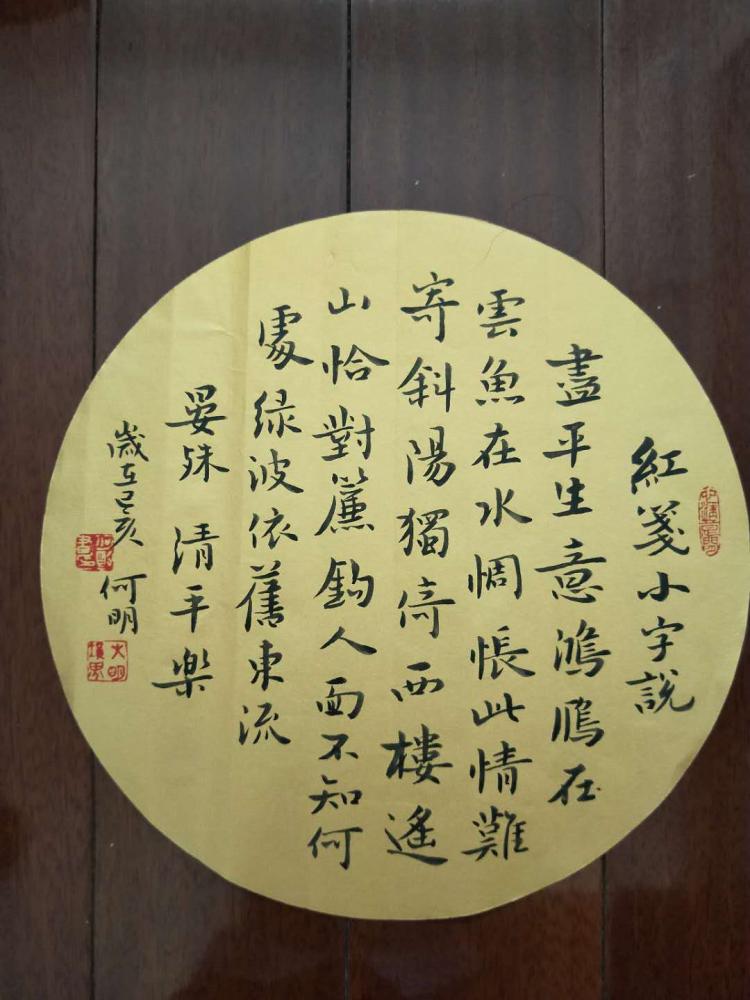 紅箋小字說
盡平生意鴻鴈在
雲魚在水惆悵此情難
寄斜陽獨倚西樓遙
山恰對簾鈎人面不知何
處绿波依舊東流
晏殊 清平樂
歲在己亥 何明